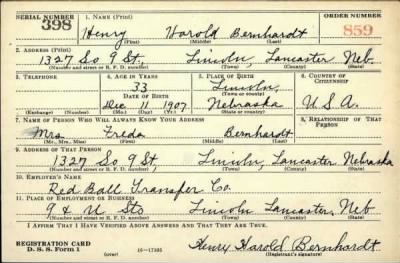 SERIAL NUMBER
398
1. NAME (Print)
ORDER NUMBER
859
Henry Harold Bernhardt
(First) (Middle) (Last)
2. ADDRESS (Print)
1327 So 9 St., Lincoln, Lancaster Neb.
(Number and street or R. F. D. number) (Town) (County) (State)
3. TELEPHONE
4. AGE IN YEARS
33
5. PLACE OF BIRTH
Lincoln,
6. COUNTRY OF CITIZENSHIP
DATE OF BIRTH
(Town or county)
Dec 11 1907
Nebraska
U.S.A.
(Exchange) (Number) (Mo.) (Day) (Yr.) (State or country)
7. NAME OF PERSON WHO WILL ALWAYS KNOW YOUR ADDRESS
8. RELATIONSHIP OF THAT PERSON
Mrs Freda Bernhardt
(Mr., Mrs., Miss) (First) (Middle) (Last)
9. ADDRESS OF THAT PERSON
1327 So 9 St, Lincoln, Lancaster Nebraska
(Number and street or R. F. D. number) (Town) (County) (State)
10. EMPLOYER'S NAME
Red Ball Transfer Co.
11. PLACE OF EMPLOYMENT OR BUSINESS
9 & U Sts Lincoln Lancaster, Neb
(Number and street or R. F. D. number) (Town) (County) (State)
I AFFIRM THAT I HAVE VERIFIED ABOVE ANSWERS AND THAT THEY ARE TRUE.
REGISTRATION CARD
D. S. S. Form 1
(over)
16—17105
Henry Harold Bernhardt
(Registrant's signature)